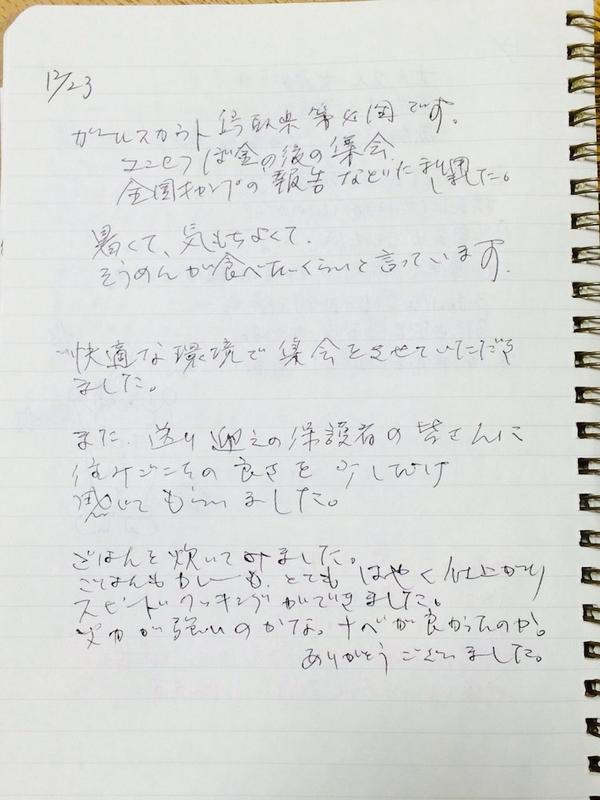 12/23
ガールスカウト鳥取県第4団です。
ユニセフ ぼ金の後の集会、
全国キャンプの報告などいたしました。
暑くて、気もちよくて、
そうめんが食べたいくらいと言っています。
快適な環境で集会をさせていただき
ました。
また、送り迎えの保護者の皆さんに
住みごこちの良さを少しだけ
感じてもらいました。
ごはんを炊いてみました。
ごはんもカレーも、とてもはやく仕上がり
スピードクッキングができました。
火力が強いのかな。ナベが良かったのか。
ありがとうございました。